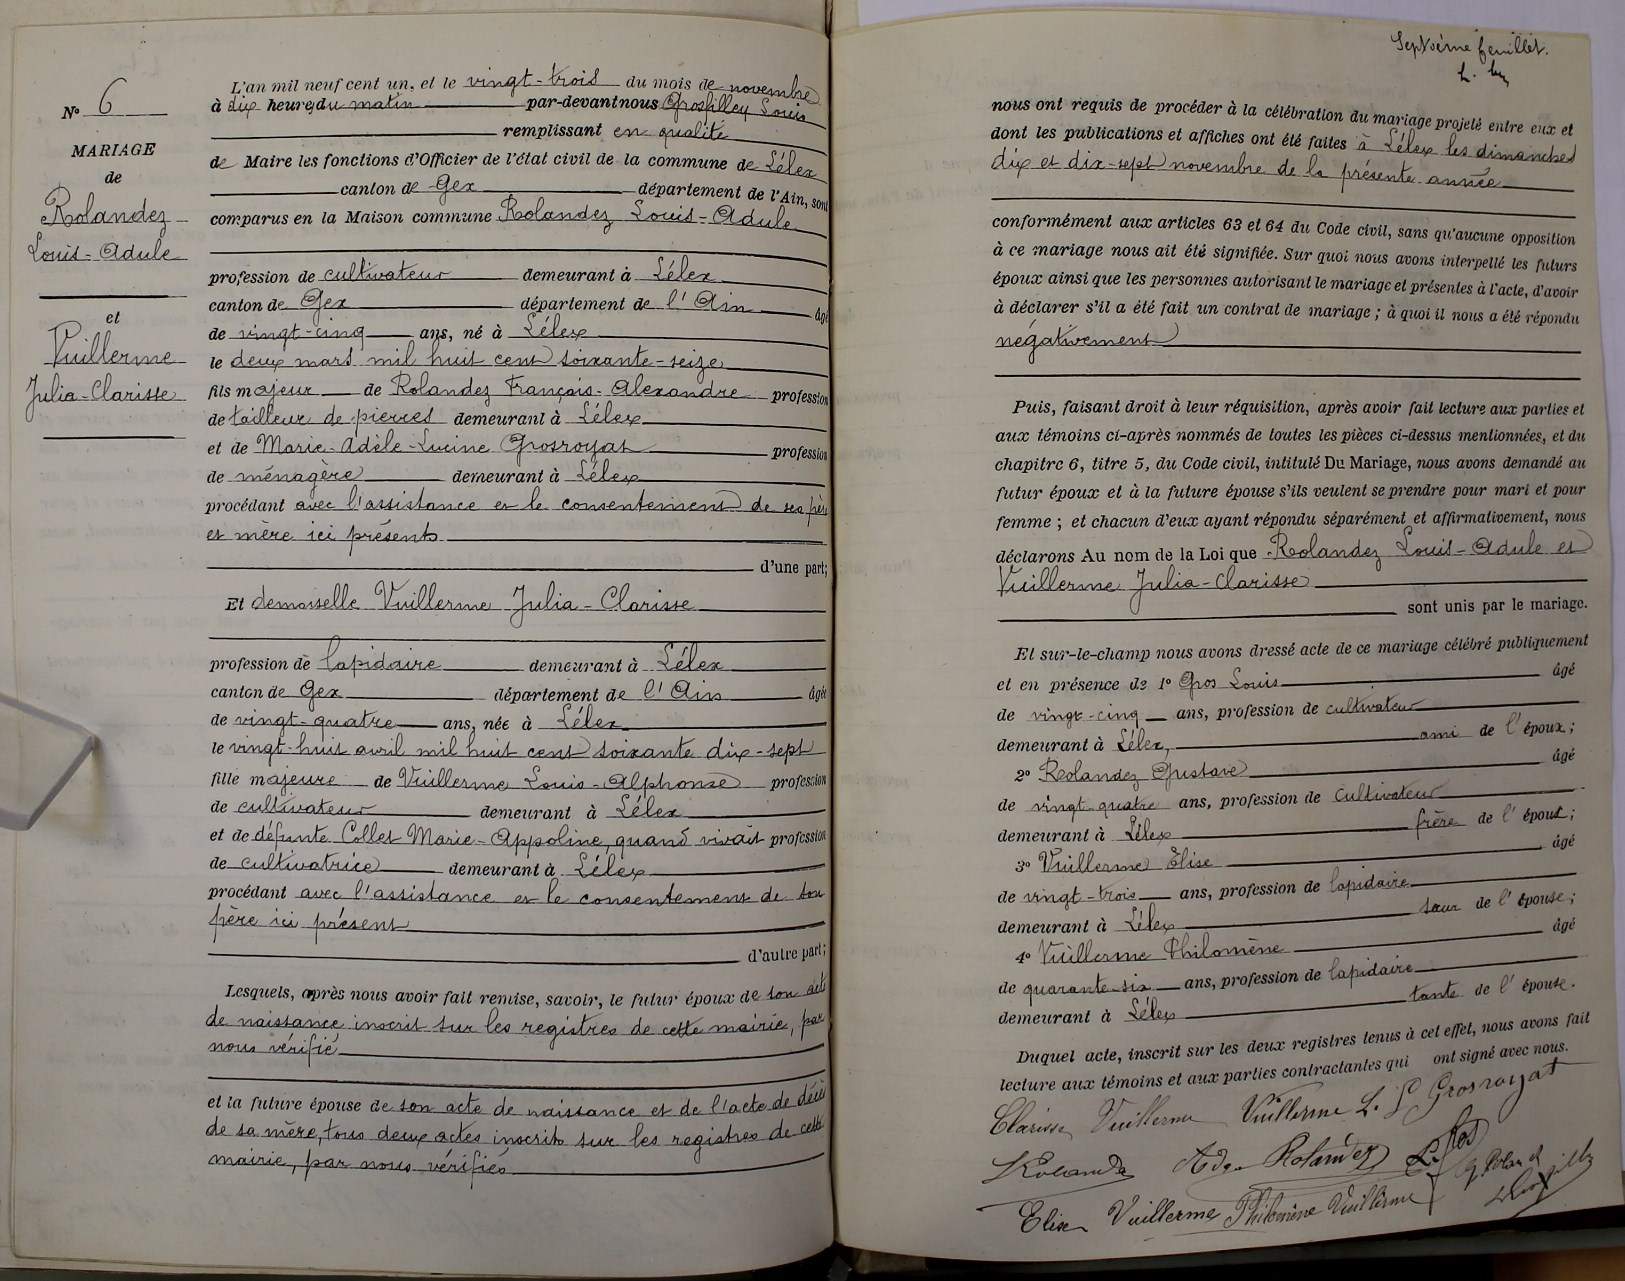 N° 6
MARIAGE
de
Rolandez
Louis-Adule
et
Vuillerme
Julia-Clarisse
L'an mil neuf cent un, et le vingt-trois du mois de novembre
à dix heures du matin par-devant nous Grosfilley Louis
remplissant en qualité
de Maire les fonctions d'Officier de l'état civil de la commune de Lélex
canton de Gex département de l'Ain, sont
comparus en la Maison commune Rolandez Louis-Adule
profession de cultivateur demeurant à Lélex
canton de Gex département de l'Ain âgé
de vingt-cinq ans, né à Lélex
le deux mars mil huit cent soixante-seize
fils majeur de Rolandez François-Alexandre profession
de tailleur de pierres demeurant à Lélex
et de Marie-Adèle-Lucine Grosroyat profession
de ménagère demeurant à Lélex
procédant avec l'assistance et le consentement de ses père
et mère ici présents
d'une part;
Et demoiselle Vuillerme Julia-Clarisse
profession de lapidaire demeurant à Lélex
canton de Gex département de l'Ain âgée
de vingt-quatre ans, née à Lélex
le vingt-huit avril mil huit cent soixante dix-sept
fille majeure de Vuillerme Louis-Alphonse profession
de cultivateur demeurant à Lélex
et de défunte Collet Marie-Appoline, quand vivait profession
de cultivatrice demeurant à Lélex
procédant avec l'assistance et le consentement de son
père ici présent
d'autre part;
Lesquels, après nous avoir fait remise, savoir, le futur époux de son acte
de naissance inscrit sur les registres de cette mairie, par
nous vérifié
et la future épouse de son acte de naissance et de l'acte de décès
de sa mère, tous deux actes inscrits sur les registres de cette
mairie, par nous vérifiés
Septième feuillet.
nous ont requis de procéder à la célébration du mariage projeté entre eux et
dont les publications et affiches ont été faites à Lélex les dimanches
dix et dix-sept novembre de la présente année
conformément aux articles 63 et 64 du Code civil, sans qu'aucune opposition
à ce mariage nous ait été signifiée. Sur quoi nous avons interpellé les futurs
époux ainsi que les personnes autorisant le mariage et présentes à l'acte, d'avoir
à déclarer s'il a été fait un contrat de mariage; à quoi il nous a été répondu
négativement
Puis, faisant droit à leur réquisition, après avoir fait lecture aux parties et
aux témoins ci-après nommés de toutes les pièces ci-dessus mentionnées, et du
chapitre 6, titre 5, du Code civil, intitulé Du Mariage, nous avons demandé au
futur époux et à la future épouse s'ils veulent se prendre pour mari et pour
femme; et chacun d'eux ayant répondu séparément et affirmativement, nous
déclarons Au nom de la Loi que Rolandez Louis-Adule et
Vuillerme Julia-Clarisse
sont unis par le mariage.
Et sur-le-champ nous avons dressé acte de ce mariage célébré publiquement
et en présence de 1° Gros Louis âgé
de vingt-cinq ans, profession de cultivateur
demeurant à Lélex, ami de l'époux;
2° Rolandez Gustave âgé
de vingt quatre ans, profession de cultivateur
demeurant à Lélex frère de l'époux;
3° Vuillerme Elise âgé
de vingt-trois ans, profession de lapidaire
demeurant à Lélex sœur de l'épouse;
4° Vuillerme Philomène âgé
de quarante-six ans, profession de lapidaire
demeurant à Lélex tante de l'épouse.
Duquel acte, inscrit sur les deux registres tenus à cet effet, nous avons fait
lecture aux témoins et aux parties contractantes qui ont signé avec nous.
Clarisse Vuillerme Vuillerme L. Grosroyat
Rolandez
Elise Vuillerme Philomène Vuillerme